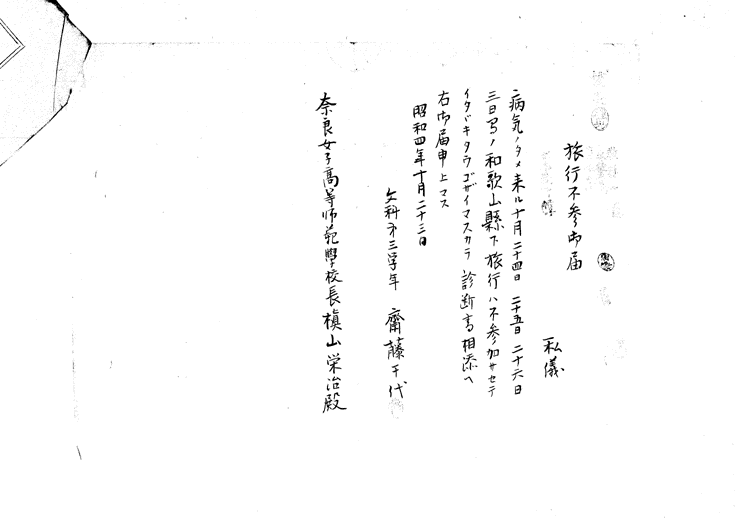 旅行不参御届
私儀
病気ノタメ来ル十月二十四日二十五日二十六日
三日間ノ和歌山縣下旅行ハ不参加サセテ
イタヾキタウゴザイマスカラ診断書相添ヘ
右御届申上マス
昭和四年十月二十三日
文科第三学年 齋藤千代
奈良女子高等師範學校長槇山栄治殿